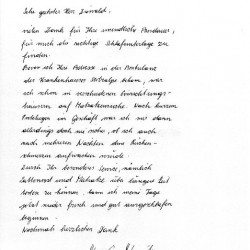 Sehr geehrter Herr
vielen Dank für Ihre unendliche Ausdauer,
für mich die richtige Schlafunterlage zu
finden.
Bevor ich Ihre Adresse in der Ambulanz
des Krankenhauses erfolge schon, war
ich schon in verschiedenen Einrichtungs-
häusern auf Matratzensuche. Nach kurzem
Probeliegen im Geschäft war ich mir dann
allerdings doch nie mehr, ob ich auch
nach mehreren Nächten ohne Rücken-
schmerzen aufwachen würde.
Durch Ihr besonderes Service, nämlich
Lattenrost und Matratze über längere Zeit
testen zu können, kann ich meine Tage
jetzt wieder frisch und gut ausgeschlafen
beginnen.
Nochmals herzlichen Dank